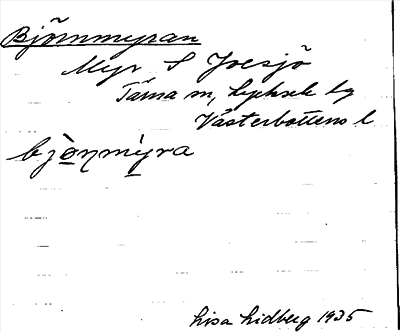 Björnmyran
Myr S Joesjö
Tärna sn, Lycksele lg
Västerbottens l
bjo̲ŋmy̲ra
Lisa Lidberg 1935